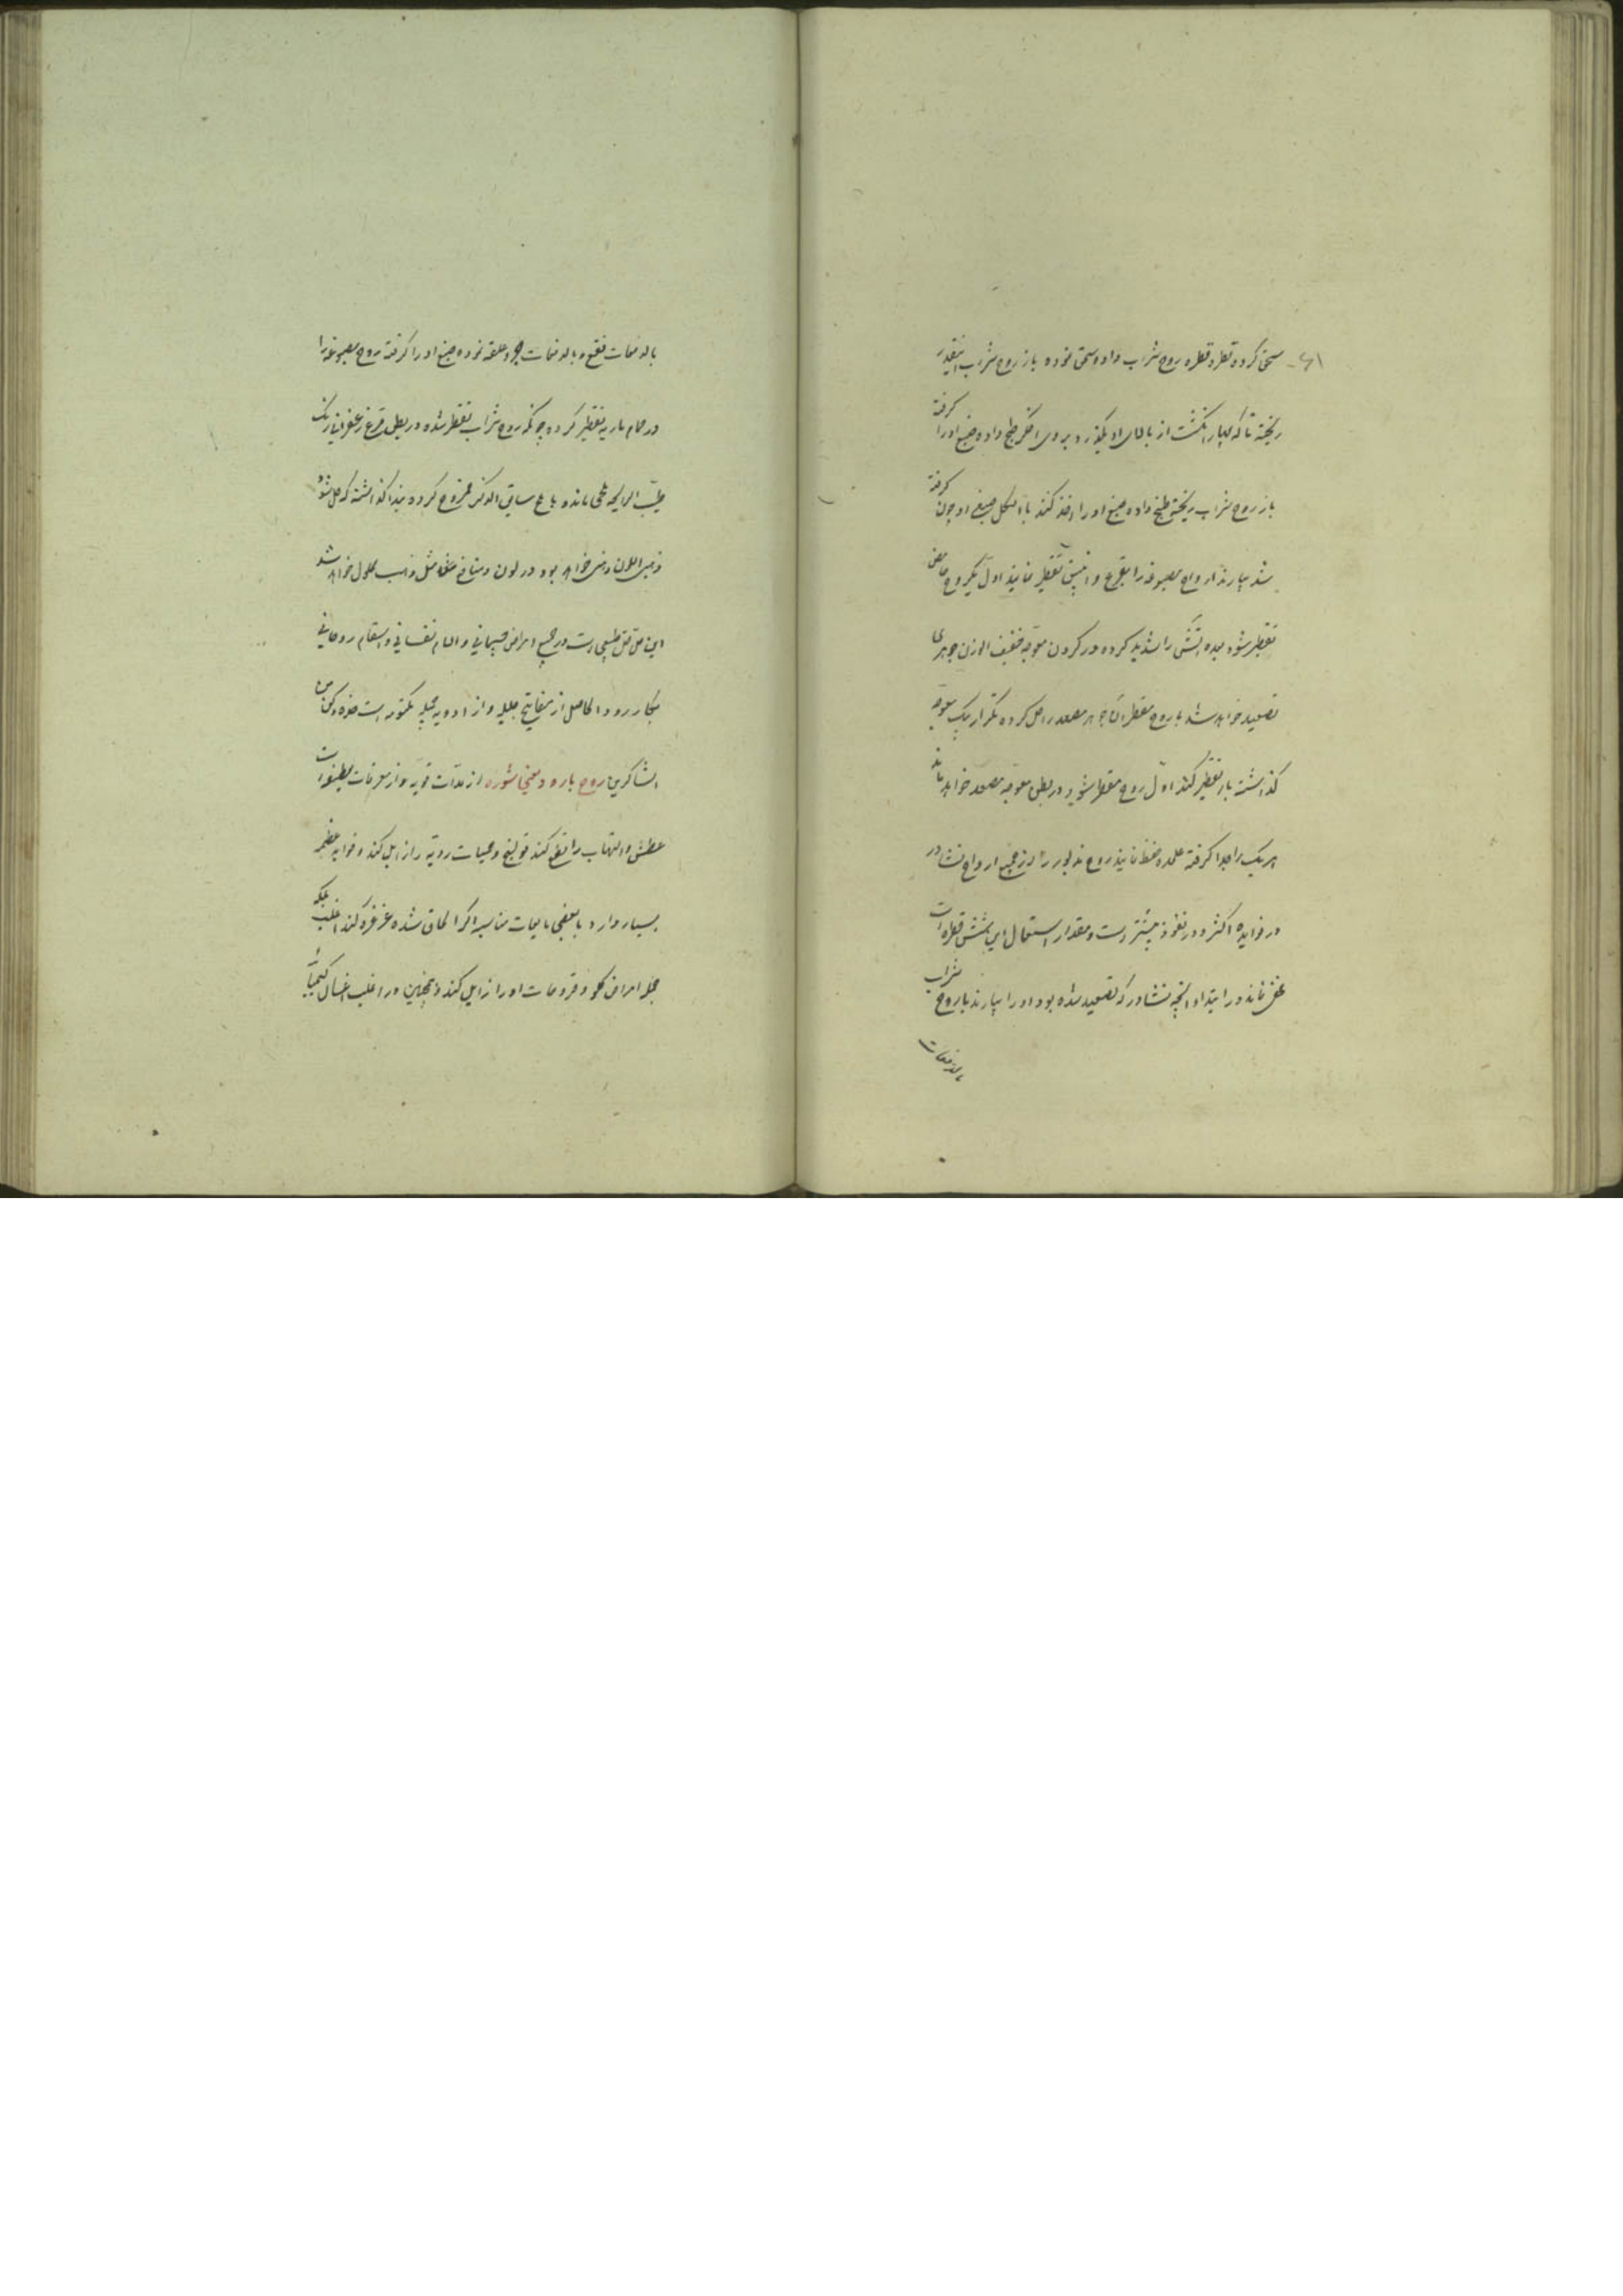 سحق کرده قطره قطره روح شراب داده سحق نموده باز روح شراب اینقدر
ریخته تا که چهار انگشت از بالای او بگذرد بر روی اخگر طبخ داده صبغ او را گرفته
باز روح شراب ریخته طبخ داده صبغ او را اخذ کنند تا بالکل صبغ او چون گرفته
شد بیارند ارواح مصبوغه را بقرع و انبیق تقطیر نمایند اول یک روح حامض
تقطیر شود بعده آتش را شدید کرده در گردن معوجه خفیف الوزن جوهری
تصعید خواهد شد با روح مقطر آن جوهر مصعد را حل کرده تکرار بیک معوجه
گذاشته باز تقطیر کنند اول روح مقطر شود و در بطن معوجه مصعد خواهد ماند
هر یک را جدا گرفته علیحده حفظ نمایند روح مذبور از جمیع ارواح نشادر
در فوایده اکثر و در نفوذ بیشتر است و مقدار استعمال این شش قطره است
نمانند در ابتدا و آنچه نشادر که تصعید شده بود او را بیارند با روح شراب
بالدفعات
بالدفعات نقع و بالدفعات نموده صبغ او را گرفته روح مصبوغه را
در حمام ماریه تقطیر کرده چونکه روح شراب تقطر شده در بطن قرع زعفرانی رنگ
طیب الرایحه ملحی ماند و با سابق الذکر ممزوج کرده بنداگذاشته که حل شود
ذهبی اللون دهنی خواهد بود در لون و منافع مثل ذهب محلول خواهد شد
این طبیعی است در جمیع امراض جسمانی و آلام نفسانی و اسقام روحانی
بکار رود الحاصل از مفاتیح جلیله و از ادویه جمیله مکتومه است خذه و کن من
الشاکرین روح بارود یعنی شوره از مدرات قویه و از معرقات
عطش و التهاب را نفع کند قولنج و حمیات ردیه را زایل کند و فواید عظیمه
بسیار دارد با بعضی مایعات مناسبه اگر الحاق شده غرغره کنند اغلب بلکه
جمله امراض گلو و قروحات او را زایل کند و همچنین در اغلب اغسال کیمیا